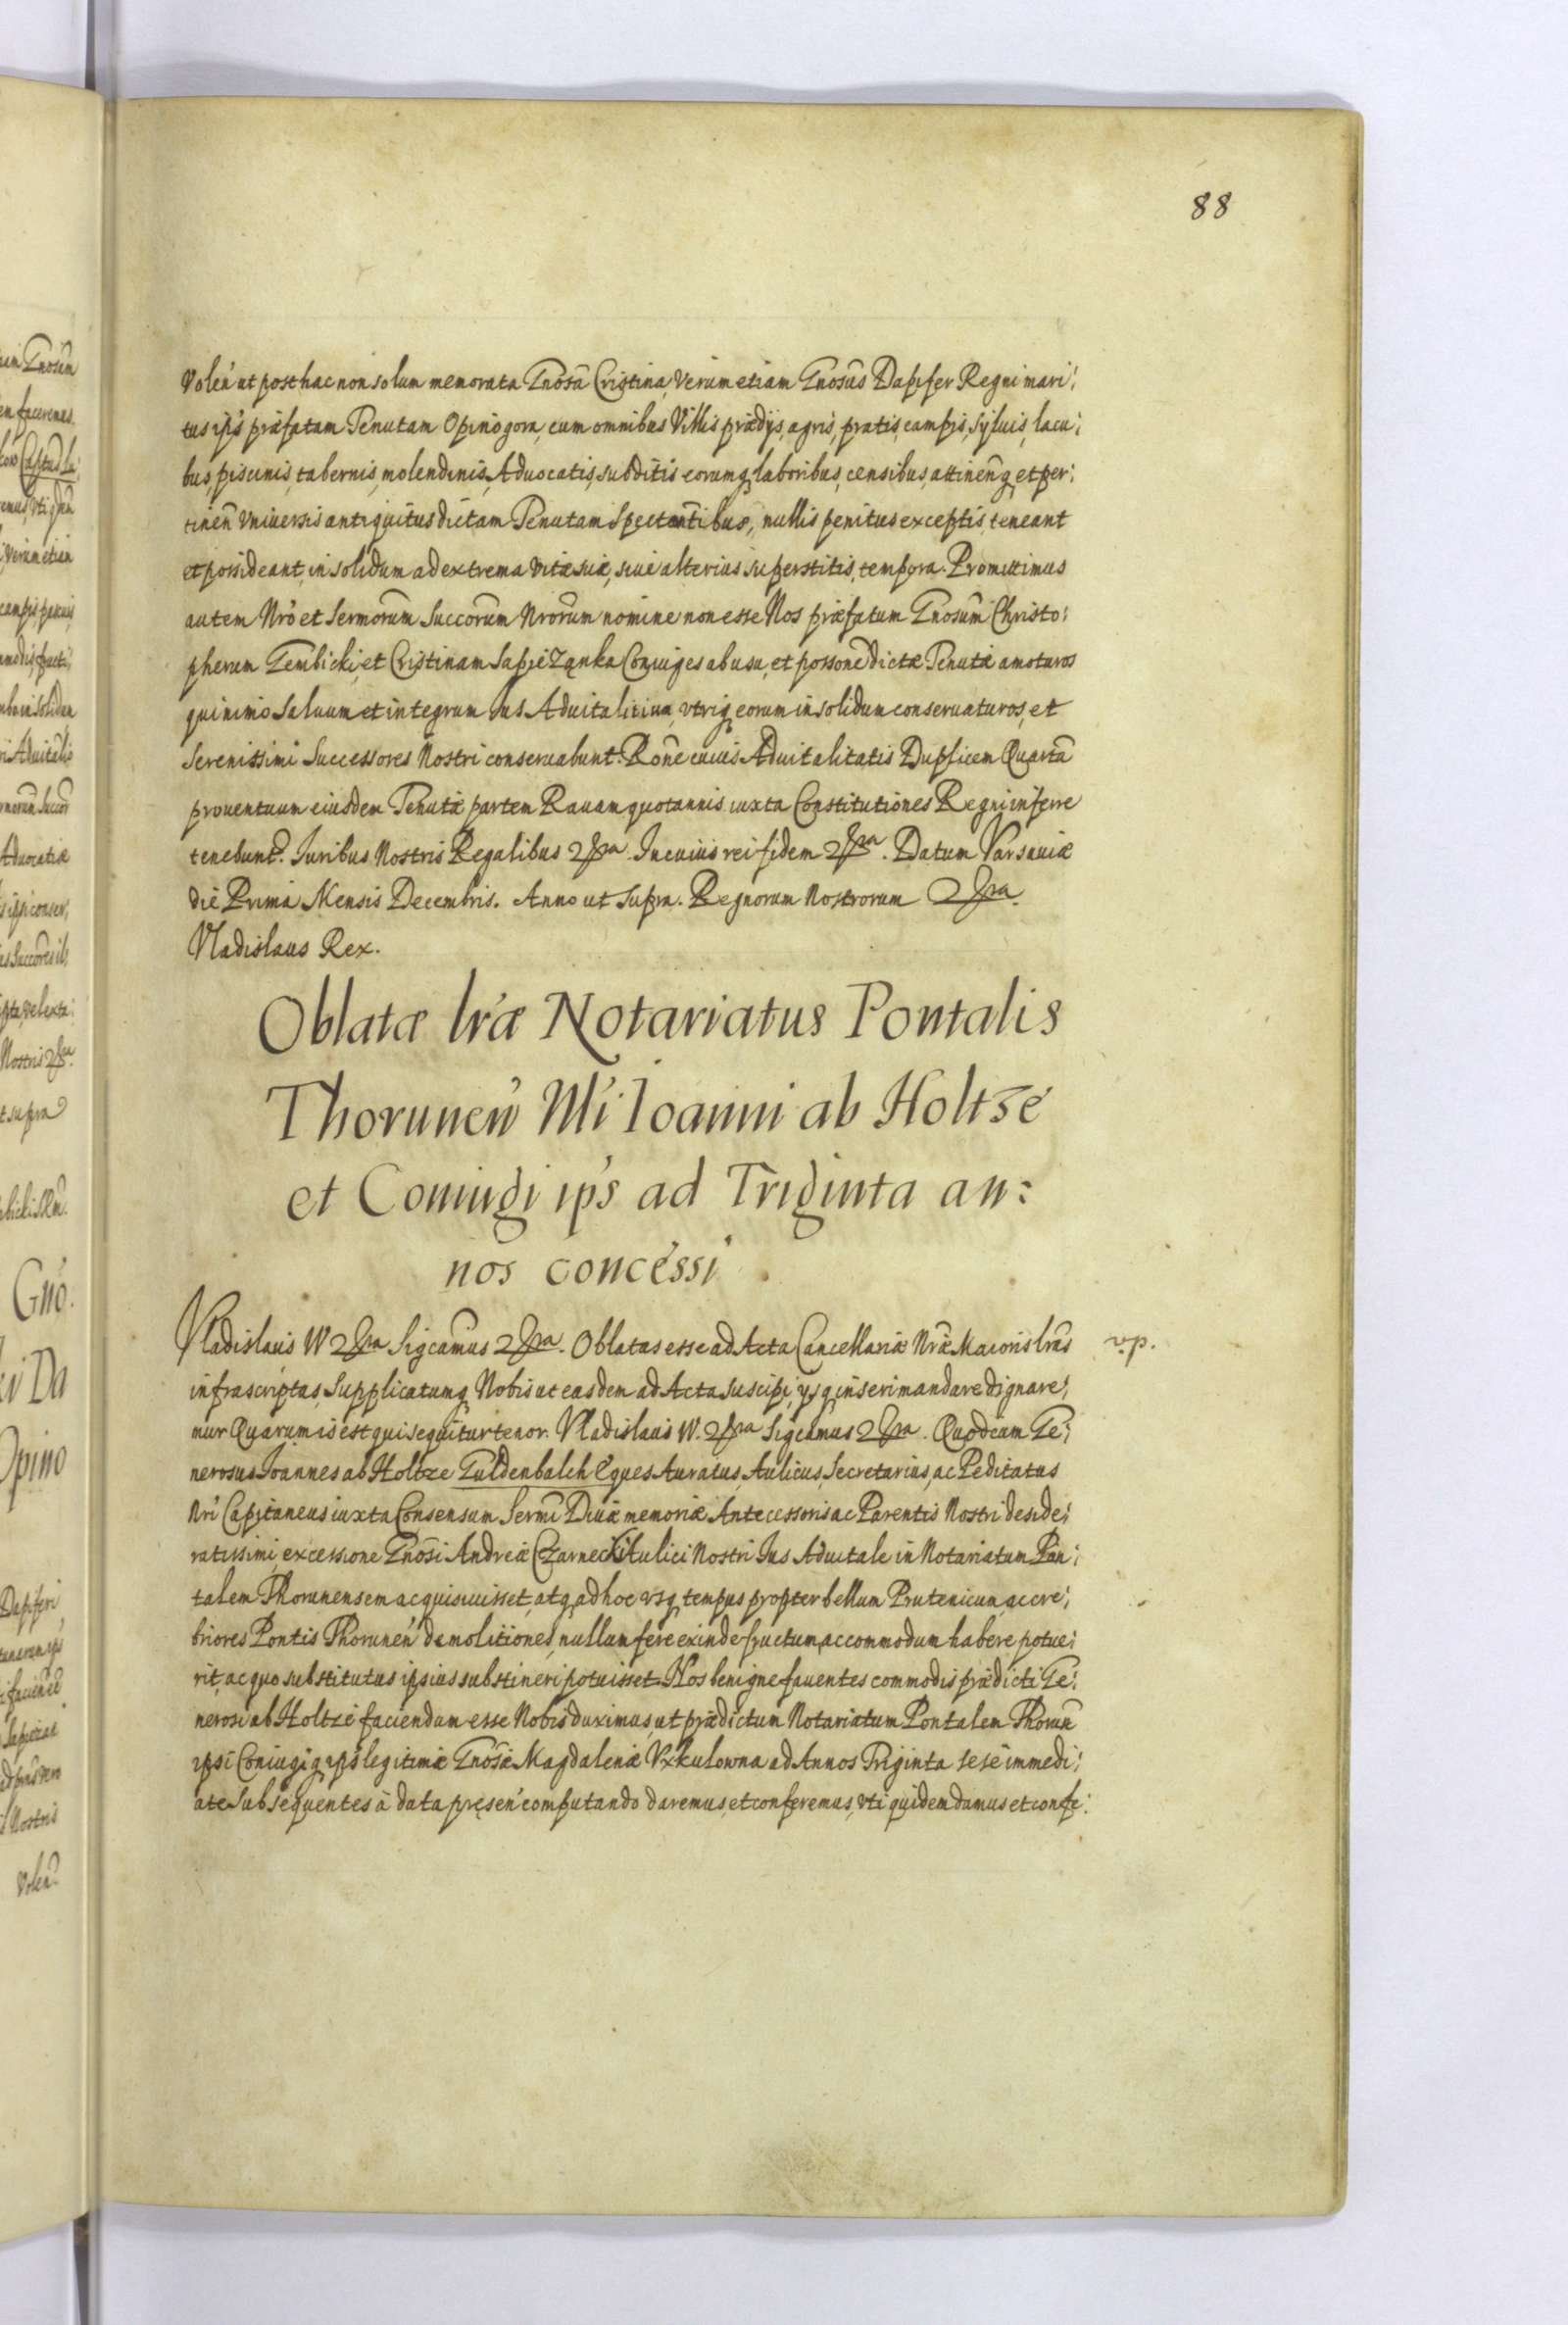 88
Volen̄ ut posthac non solum memorata Gnosa Cristina, Verum etiam Gnosus Dapifer Regni mari:
tus ips præfatam Tenutam Opinogora, cum omnibus Villis prædijs, agris, pratis, campis, syluis, lacu:
bus, piscinis, tabernis, molendinis, Aduocatis, subditis eorumq laboribus, censibus, attinen̄q et per:
tinen̄ Vniuersis antiquitus dictam Tenutam Spectantibus, nullis penitus exceptis, teneant
et possideant, in solidum ad extrema Vitæ suæ, siue alterius superstitis, tempora. Promittimus
autem Nrō et Sermorum Succorum Nrorum nomine non esse Nos præfatum Gnosum Christo:
pherum Gembicki, et Cristinam Sapieżanka Coniuges ab usu, et possone dictæ Tenutæ amoturos
quinimo Saluum et integrum Ius Aduitalitium, utriq eorum in solidum conseruaturos, et
Serenissimi Successores Nostri conseruabunt. Rōne cuius Aduitalitatis Duplicem Quartā
prouentuum eiusdem Tenutæ partem Rauam quotannis iuxta Constitutiones Regni inferre
tenebunt. Iuribus Nostris Regalibus &ra. In cuius rei fidem &ra. Datum Varsauiæ
die Prima Mensis Decembris. Anno ut supra. Regnorum Nostrorum &ra.
Vladislaus Rex.
Oblatæ lræ Notariatus Pontalis
Thorunen̄ M̄i Ioanni ab Holtze
et Coniugi ips ad Triginta an:
nos concessi
Vladislaus W &ra Sigcamus &ra. Oblatas esse ad Acta Cancellariæ Nræ Maioris lras
v.p.
infrascriptas, Supplicatumq Nobis ut easdem ad Acta suscipi, ysq inseri mandare dignare:
mur Quarum is est qui sequitur tenor. Vladislaus W. &ra Sigcamus &ra. Quod cum Ge:
nerosus Ioannes ab Holtze Guldenbalch Eques Auratus, Aulicus, Secretarius, ac Peditatus
Nri Capitaneus iuxta Consensum Sermi Diuæ memoriæ Antecessoris ac Parentis Nostri deside:
ratissimi ex cessione Gnosi Andreæ Czarnecki Aulici Nostri Ius Aduitale in Notariatum Pon:
talem Thorunensem acquisiuisset, atq ad hoc usq tempus propter bellum Prutenicum, ac cre:
briores Pontis Thorunen̄ demolitiones, nullum fere exinde fructum, ac commodum habere potue:
rit, ac quo substitutus ipsius substineri potuisset. Nos benigne fauentes commodis prædicti Ge:
nerosi ab Holtze faciendum esse Nobis duximus, ut prædictum Notariatum Pontalem Thorun̄
ipsi Coniugiq ips legitimæ Gnosæ Magdalenæ Vxkulowna ad Annos Triginta sese immedi:
ate Subsequentes à data præsen̄ computando daremus, et conferemus, uti quidem damus et confe: